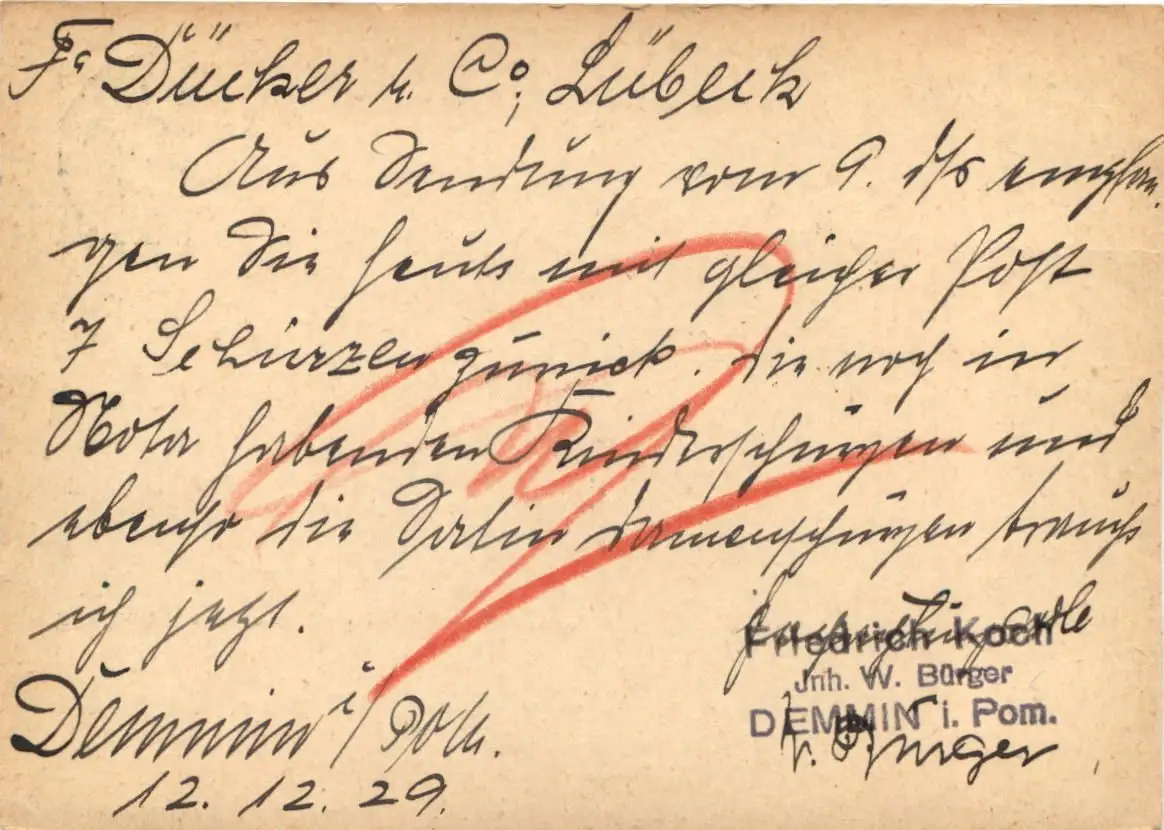 Fa Dücker u. Co, Lübeck
Aus Sendung vom 9. d/s empfan-
gen Sie heute mit gleicher Post
7 Schürzen zurück. Die noch in
Nota habenden Kinderschürzen und
ebenso die Satin Damenschürzen brauche
ich jetzt.
Friedrich Koch
Jnh. W. Bürger
DEMMIN i. Pom.
W. Bürger
Demmin i/Pom.
12. 12. 29.